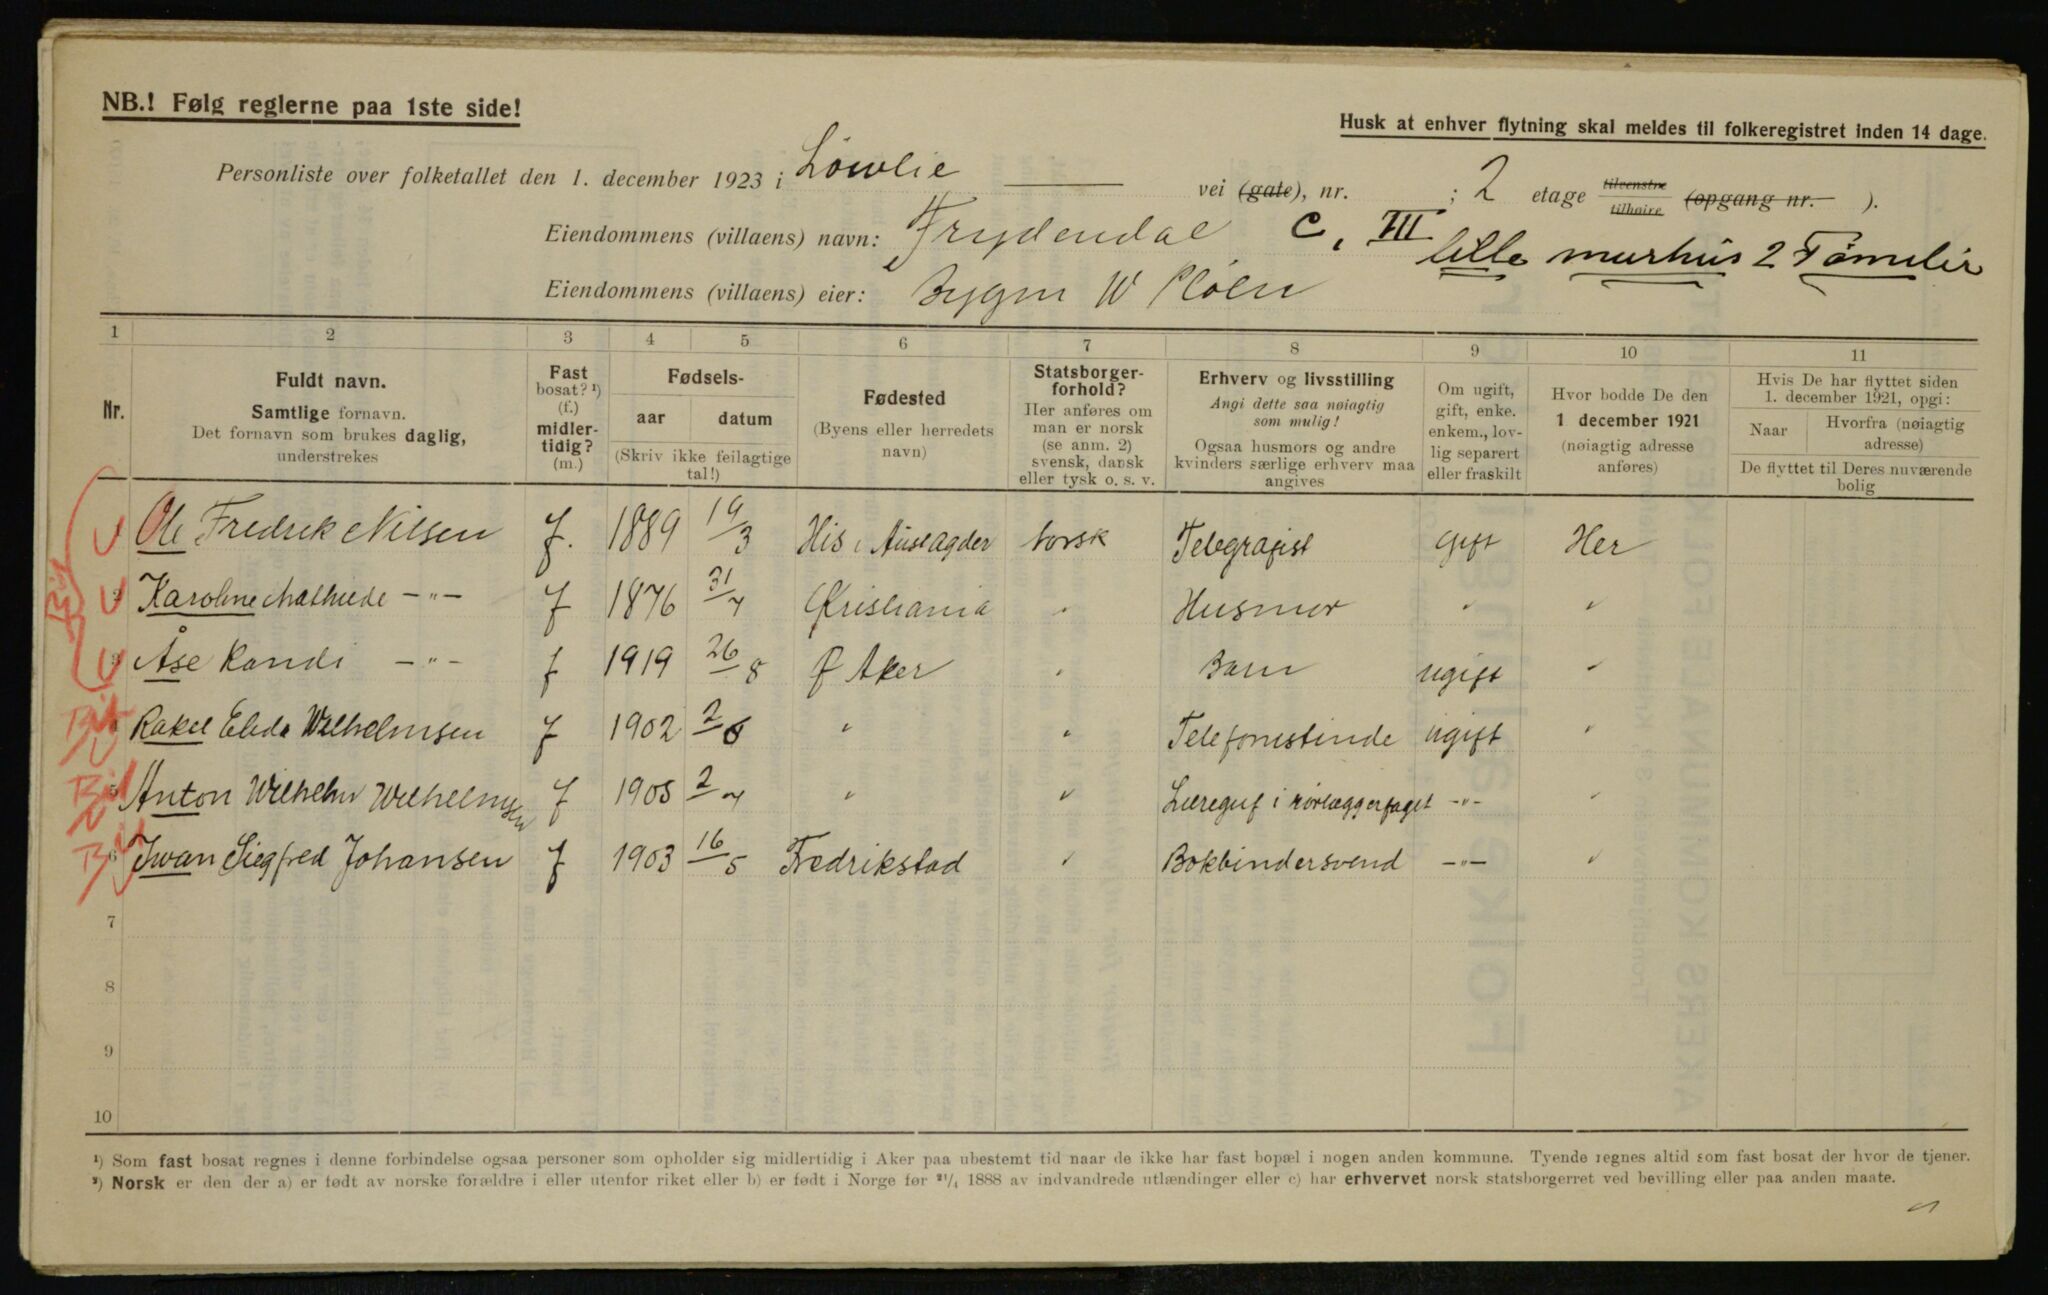 NB.! Følg reglerne paa 1ste side!
Husk at enhver flytning skal meldes til folkeregistret inden 14 dage.
Personliste over folketallet den 1. december 1923 i Løvlie vei (gate), nr. ; 2 etage tilvenstre tilhøire (opgang nr. ).
Eiendommens (villaens) navn: Frydendal C, III lille murhus 2 Familier
Eiendommens (villaens) eier: Bygm W Pløen
1 2 3 4 5 6 7 8 9 10 11
Nr.
Fuldt navn.
Samtlige fornavn.
Det fornavn som brukes daglig,
understrekes
Fast
bosat? ¹)
(f.)
midler-
tidig?
(m.)
Fødsels-
aar datum
(Skriv ikke feilagtige
tal!)
Fødested
(Byens eller herredets
navn)
Statsborger-
forhold?
Her anføres om
man er norsk
(se anm. 2)
svensk, dansk
eller tysk o. s. v.
Erhverv og livsstilling
Angi dette saa nøiagtig
som mulig!
Ogsaa husmors og andre
kvinders særlige erhverv maa
angives
Om ugift,
gift, enke.
enkem., lov-
lig separert
eller fraskilt
Hvor bodde De den
1 december 1921
(nøiagtig adresse
anføres)
Hvis De har flyttet siden
1. december 1921, opgi:
Naar
Hvorfra (nøiagtig
adresse)
De flyttet til Deres nuværende
bolig
Ole Fredrik Nilsen f. 1889 19/3 His i Austagder Norsk Telegrafist Gift Her
2 Karoline Mathilde —"— f 1876 31/7 Kristiania " Husmor " "
3 Åse Randi —"— f 1919 26/8 Ø Aker " Barn ugift "
4 Rakel Elida Wilhelmsen f 1902 2/6 " " Telefonistinde ugift "
5 Anton Wilhelm Wilhelmsen f 1905 2/7 " " Læregut i rørlæggerfaget -"- "
6 Iwan Siegfred Johansen f 1903 16/5 Fredrikstad " Bokbindersvend -"- "
7
8
9
10
¹) Som fast bosat regnes i denne forbindelse ogsaa personer som opholder sig midlertidig i Aker paa ubestemt tid naar de ikke har fast bopæl i nogen anden kommune. Tyende regnes altid som fast bosat der hvor de tjener.
²) Norsk er den der a) er født av norske forældre i eller utenfor riket eller b) er født i Norge før ²¹/₄ 1888 av indvandrede utlændinger eller c) har erhvervet norsk statsborgerret ved bevilling eller paa anden maate.